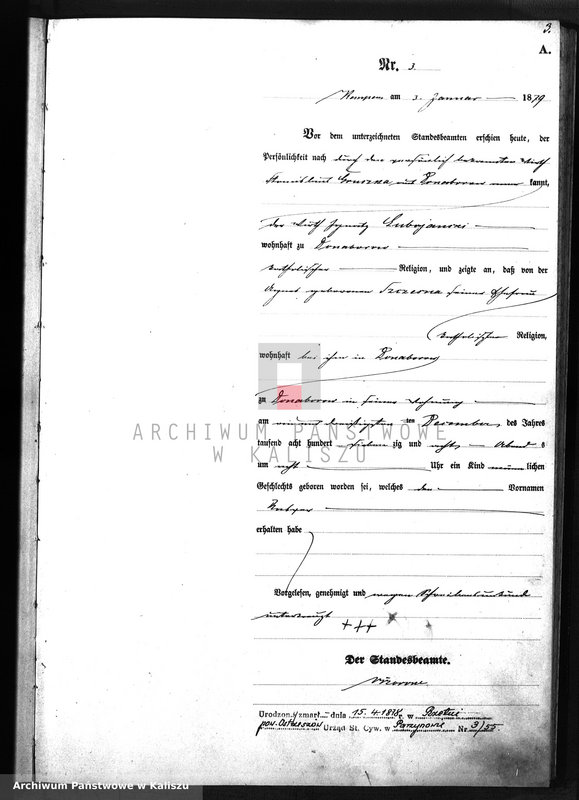 3.
A.
Nr. 3
Kempen am 3. Januar 1879
Vor dem unterzeichneten Standesbeamten erschien heute, der
Persönlichkeit nach durch den persönlich bekannten Wirth
Stanislaus Gruszka aus Donaborow kannt,
der Wirth Ignatz
wohnhaft zu Donaborow
katholischer Religion, und zeigte an, daß von der
Agnes geborenen Szczesna seiner Ehefrau
katholischer Religion,
wohnhaft bei ihm in Donaborow
zu Donaborow in seiner Wohnung
am neun und zwanzigsten ten Dezember des Jahres
tausend acht hundert sieben zig und acht Abends
um acht Uhr ein Kind männlichen
Geschlechts geboren worden sei, welches den Vornamen
erhalten habe
Vorgelesen, genehmigt und wegen Schreibensunkunde
unterkreuzt
+++
Der Standesbeamte.
Urodzon./zmarł dnia 15.4.1878 r. w
pow. Ostrzeszów Urząd St. Cyw. w Parzynowie Nr 3/55
ARCHIWUM PAŃSTWOWE
W KALISZU
Archiwum Państwowe w Kaliszu